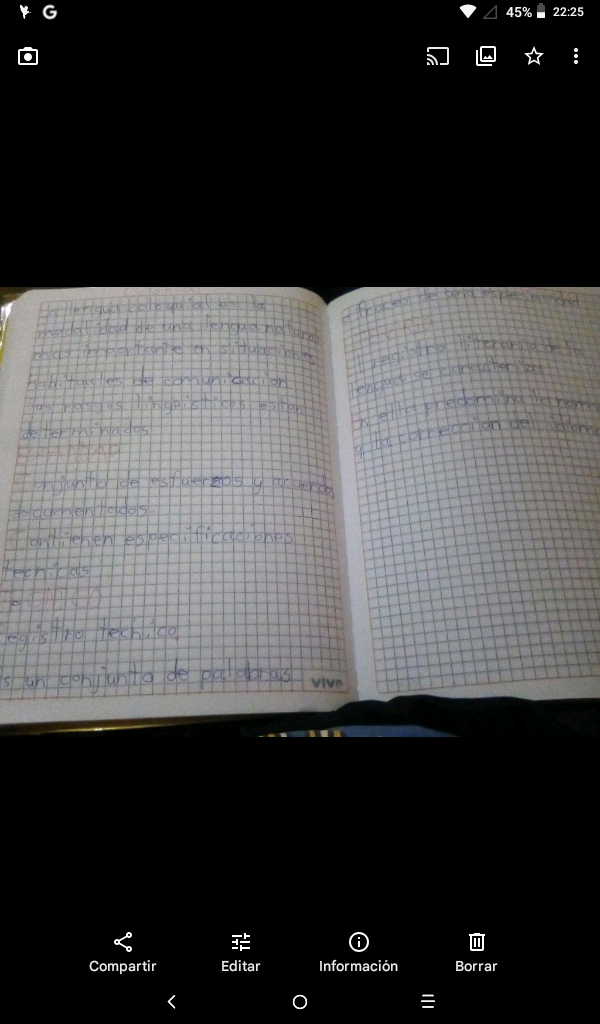 45% 22:25
La lengua coloquial es la
modalidad de una lengua natural
mas importante en situaciones
habituales de comunicacion
rasgos linguisticos estan
determinados
conjunto de esfuerzos y acuerdos
Contienen especificaciones
tecnicas
TeCNICO
registro tecnico
es un conjunto de palabras
vivo
de una especialidad
registro literario de la
lengua se caracteriza
en ella predomina la norma
y la correccion del idioma
Compartir
Editar
Información
Borrar